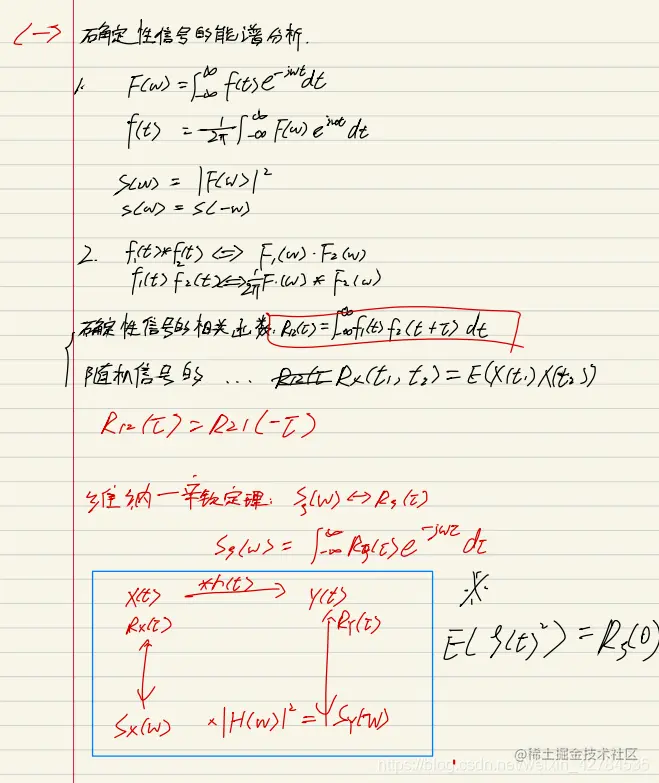 (一) 确定性信号的能谱分析.
1. F(w) = ∫_{-∞}^{∞} f(t) e^{-jwt} dt
f(t) = 1/2π ∫_{-∞}^{∞} F(w) e^{jwt} dt
S(w) = |F(w)|²
s(w) = s(-w)
2. f₁(t)*f₂(t) <=> F₁(w)·F₂(w)
f₁(t) f₂(t) <=> 1/2π F₁(w) * F₂(w)
确定性信号的相关函数: R₁₂(τ) = ∫_{-∞}^{∞} f₁(t) f₂(t+τ) dt
随机信号的 ... Rx(t₁, t₂) = E(X(t₁) X(t₂))
R12(τ) = R21(-τ)
维纳一辛钦定理: Sξ(w) ↔ Rξ(τ)
Sξ(w) = ∫_{-∞}^{∞} Rξ(τ) e^{-jwτ} dτ
X(t) *h(t) → Y(t)
Rx(τ) RY(τ)
Sx(w) ×|H(w)|² = SY(w)
※
E(ξ(t)²) = Rξ(0)
@稀土掘金技术社区